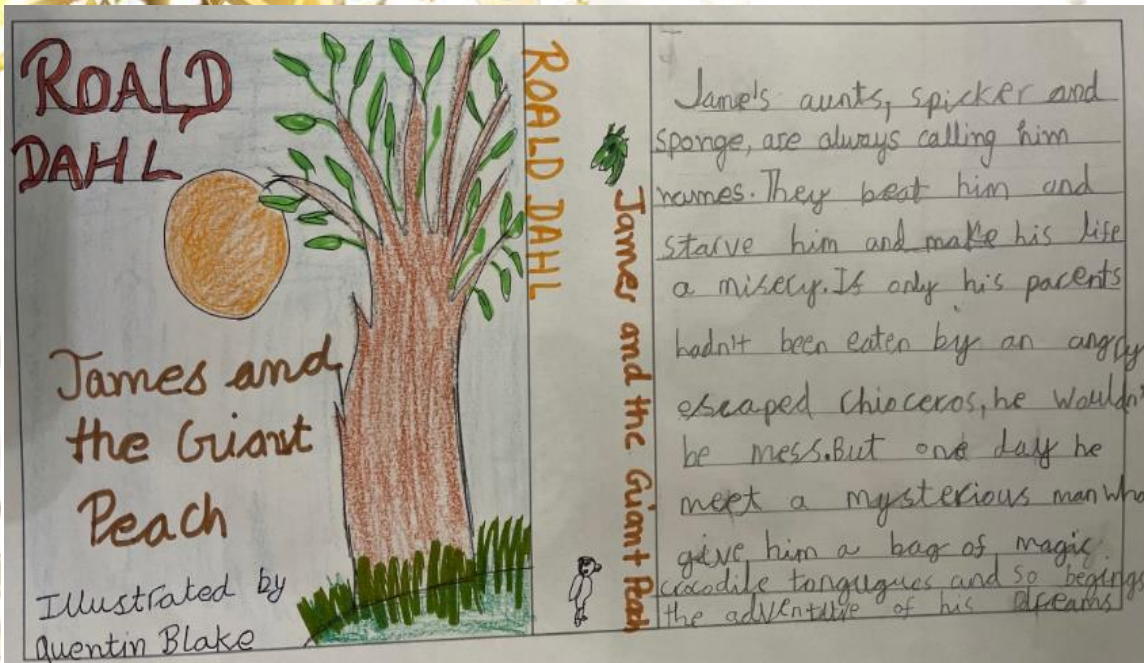 ROALD
DAHL
James and
the Giant
Peach
Illustrated by
Quentin Blake
ROALD DAHL
James and the Giant Peach
Jame's aunts, spicker and
sponge, are always calling him
names. They beat him and
starve him and make his life
a misery. If only his parents
hadn't been eaten by an angry
escaped rhioceros, he wouldn't
be mess. But one day he
meet a mysterious man who
give him a bag of magic
crocodile tongugues and so begings
the adventure of his dreams